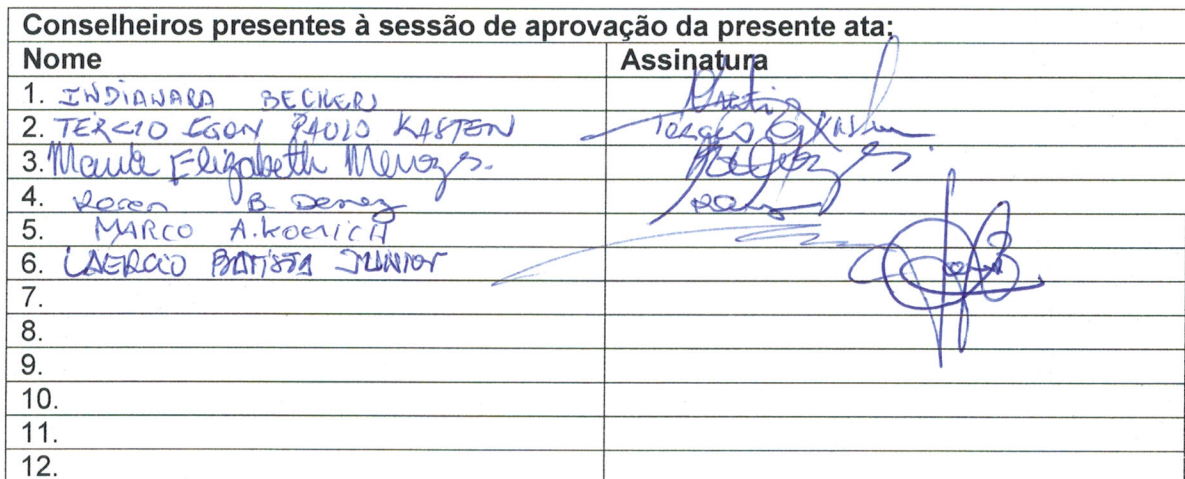 Conselheiros presentes à sessão de aprovação da presente ata:
Nome Assinatura
1. INDIANARA BECKER
2. TERCIO EGON PAULO KASTEN Tercio E Kasten
3. Elizabeth
4. B. Denez
5. MARCO A. KOERICH
6. LAERCIO BATISTA JUNIOR
7.
8.
9.
10.
11.
12.